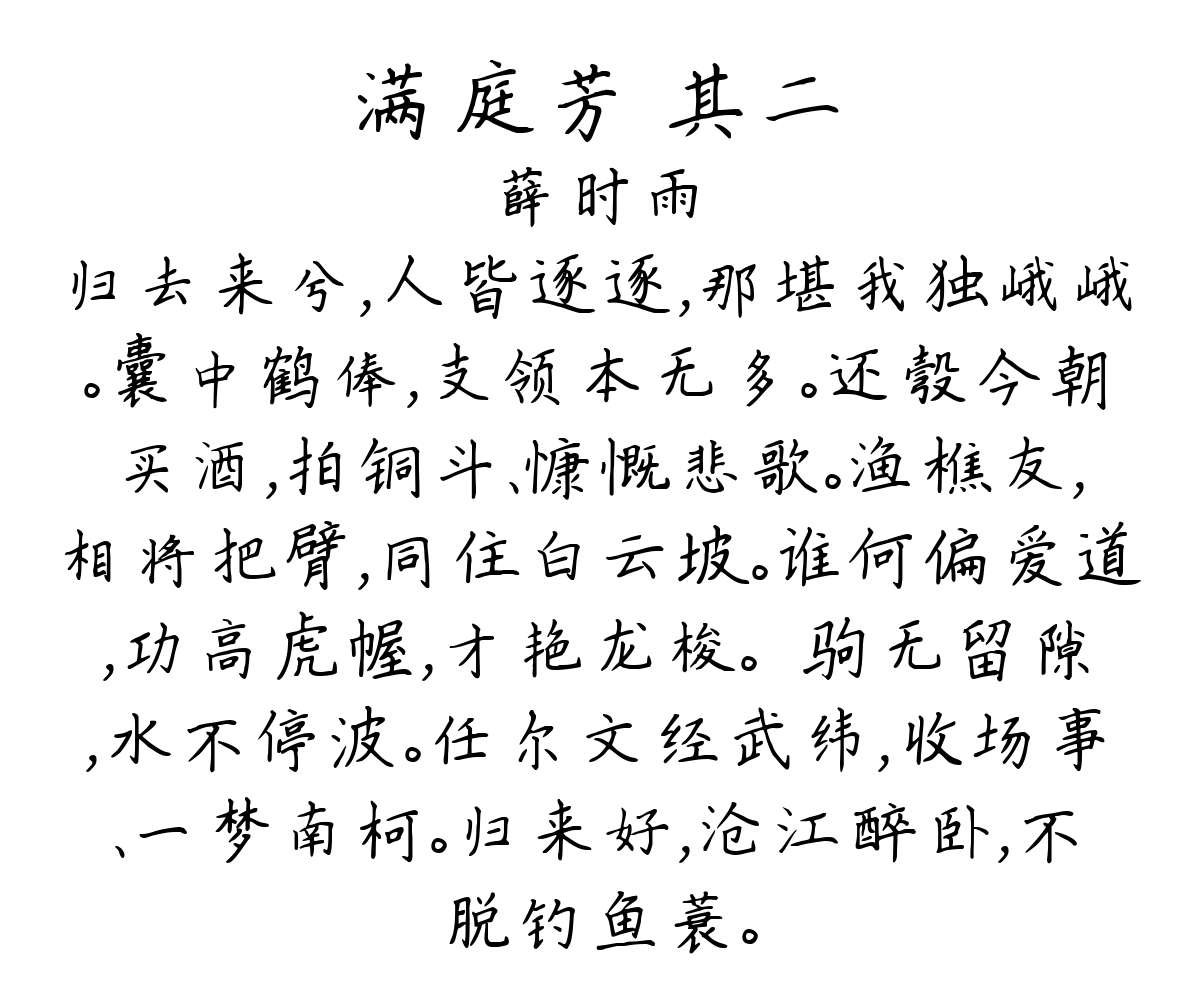 满庭芳 其二
薛时雨
归去来兮,人皆逐逐,那堪我独峨峨
。囊中鹤俸,支领本无多。还彀今朝
买酒,拍铜斗、慷慨悲歌。渔樵友,
相将把臂,同住白云坡。谁何偏爱道
,功高虎幄,才艳龙梭。 驹无留隙
,水不停波。任尔文经武纬,收场事
、一梦南柯。归来好,沧江醉卧,不
脱钓鱼蓑。